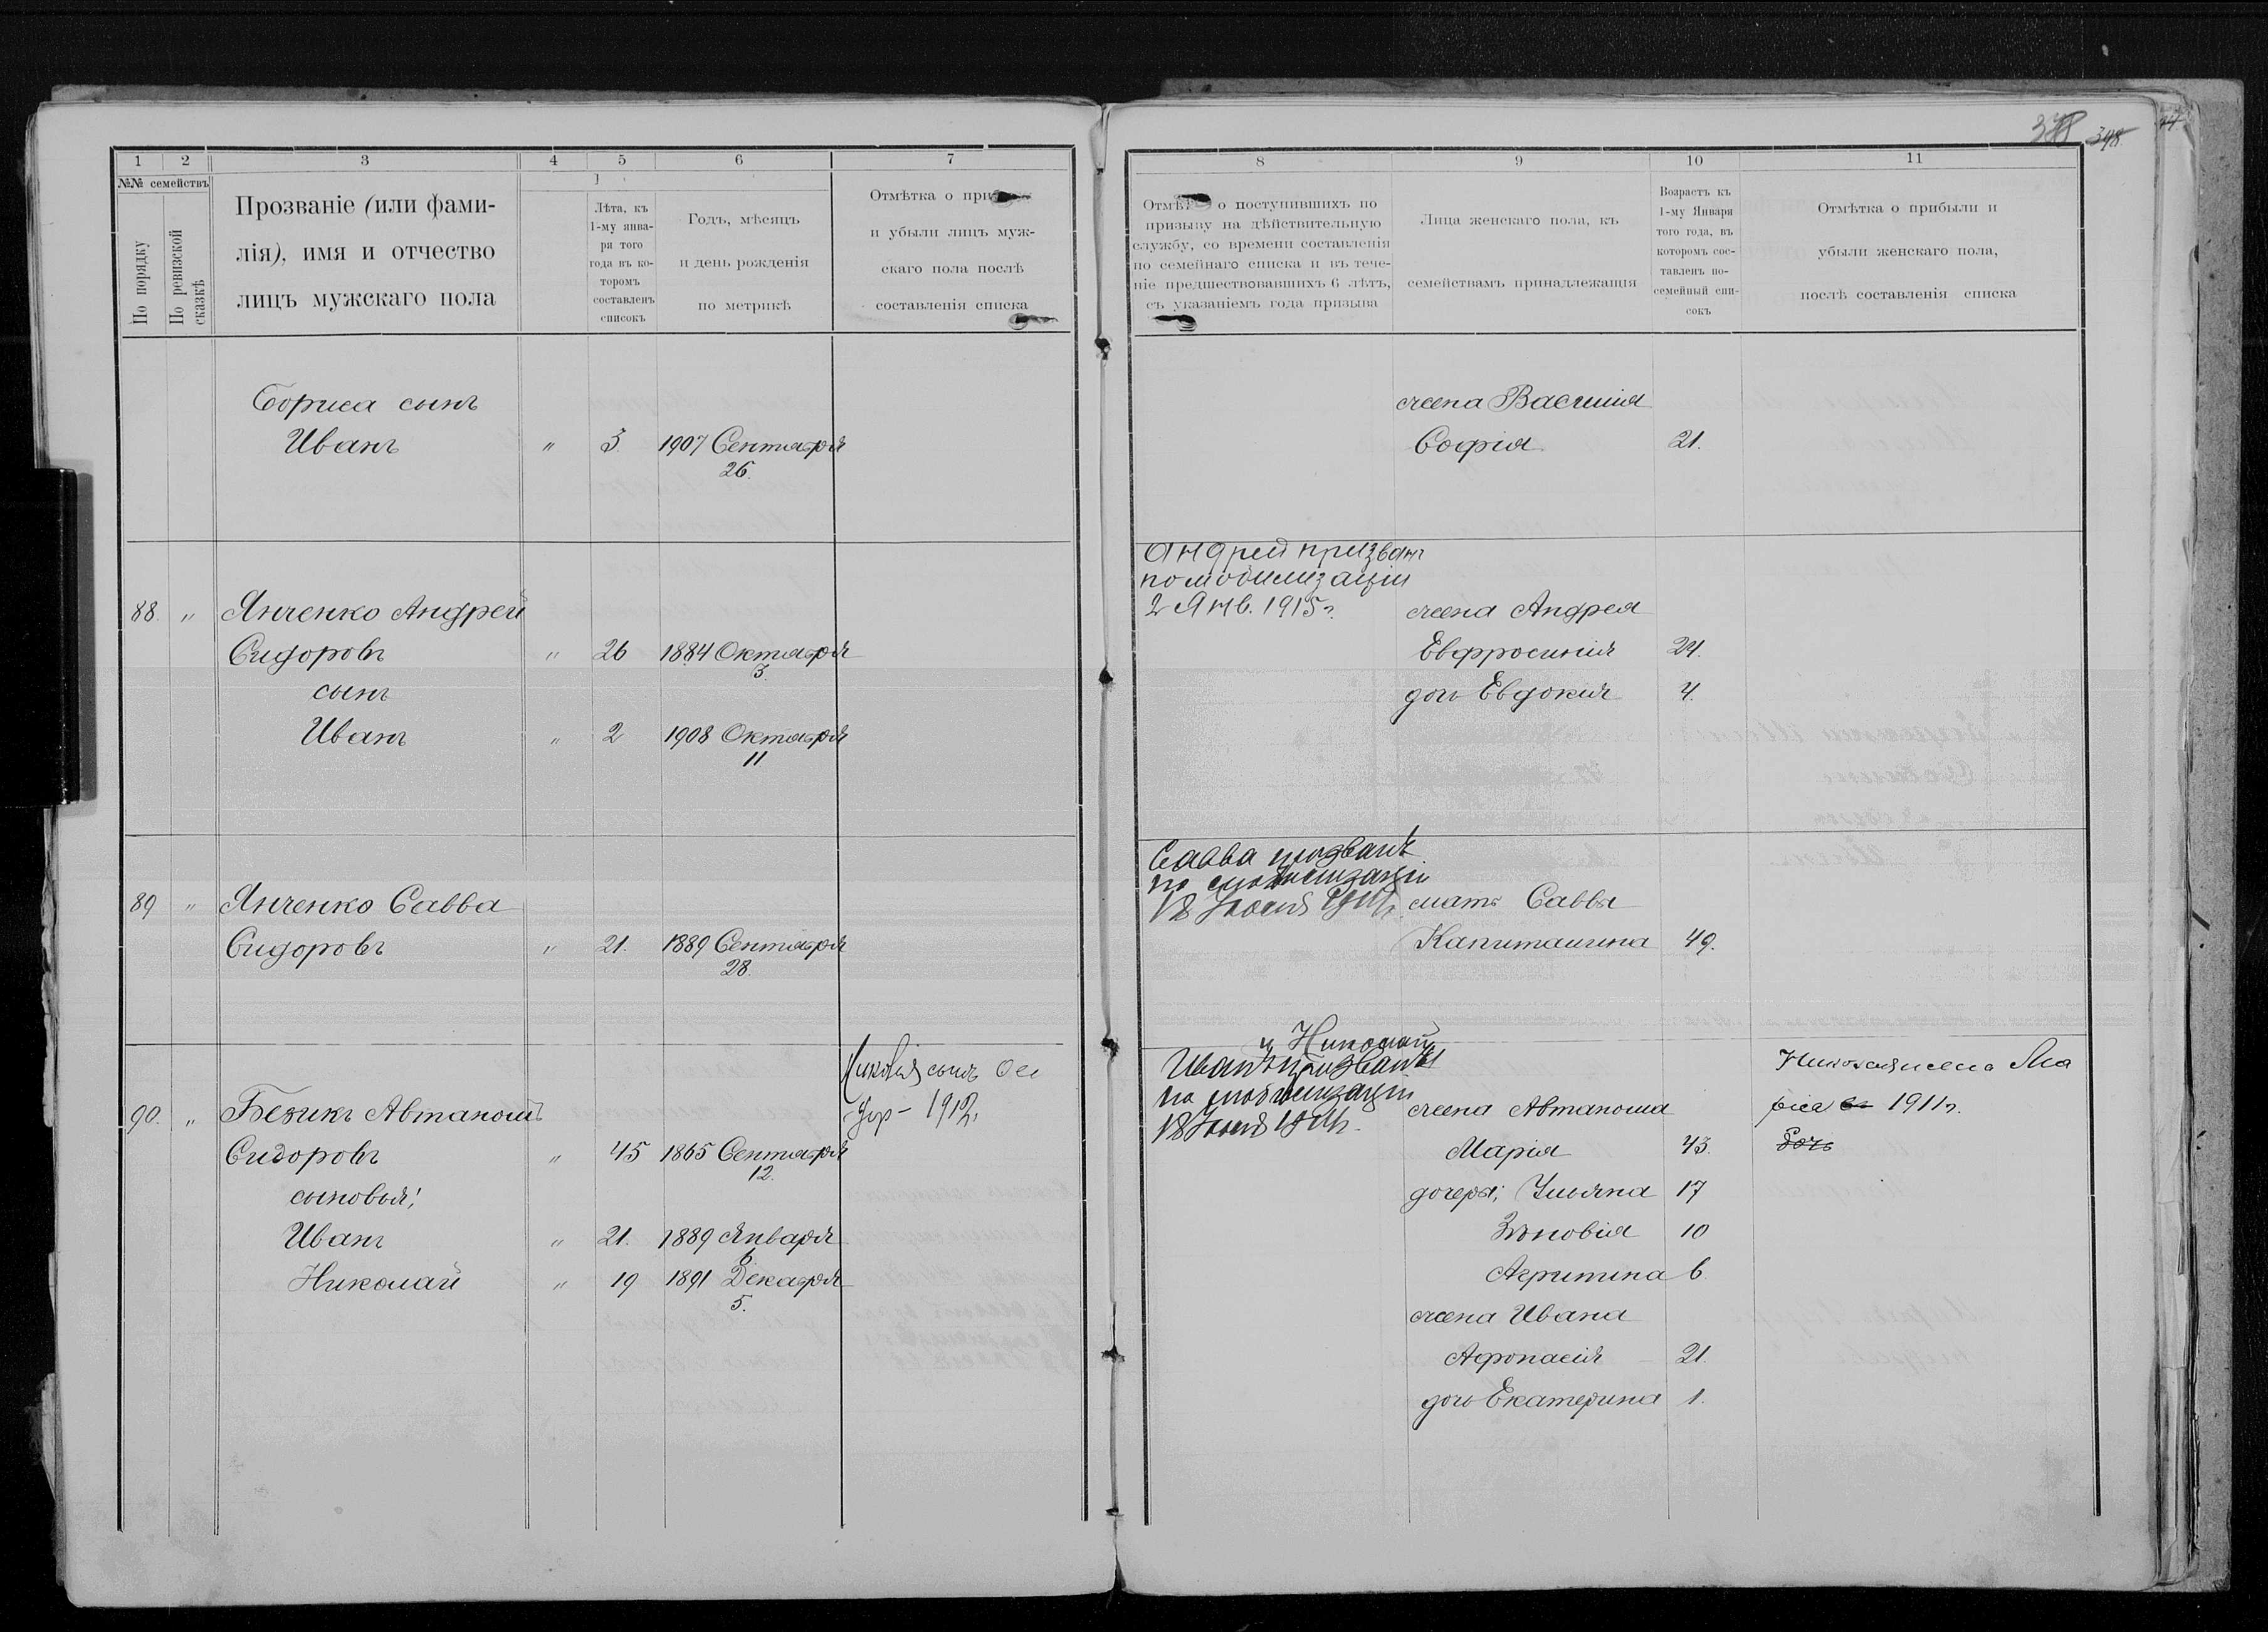 1 2 3 4 5 6 7
№№ семействъ
По порядку
По ревизской сказкѣ
Прозваніе (или фами-
лія), имя и отчество
лицъ мужскаго пола
Лѣта, къ
1-му янва-
ря того
года въ ко-
торомъ
составленъ
списокъ
Годъ, мѣсяцъ
и день рожденія
по метрикѣ
Отмѣтка о
и убыли лицъ муж-
скаго пола послѣ
составленія списка
Бориса сынъ
Иванъ " 3. 1907 Сентября
26.
88. " Янченко Андрей
Сидоровъ " 26 1884 Октября
3
сынъ
Иванъ " 2 1908 Октября
11
89 " Янченко Савва
Сидоровъ " 21. 1889 Сентября
28.
сынъ
1912
90. " Безикъ Автаномъ
Сидоровъ " 45 1865 Сентября
12.
сыновья:
Иванъ " 21. 1889 Января
6
Николай " 19 1891 Декабря
5.
378 348
8 9 10 11
о поступившихъ по
призыву на дѣйствительную
службу, со времени составленія
по семейнаго списка и въ тече-
ніе предшествовавшихъ 6 лѣтъ,
съ указаніемъ года призыва
Лица женскаго пола, къ
семействамъ принадлежащія
Возрастъ къ
1-му Января
того года, въ
которомъ сос-
тавленъ по-
семейный спи-
сокъ
Отмѣтка о прибыли и
убыли женскаго пола,
послѣ составленія списка
жена Василія
Софія 21.
Андрей призванъ
по мобилизаціи
2 Янв. 1915 г.
жена Андрея
Евфросинія 24.
дочь Евдокія 4.
Савва призванъ
по мобилизаціи
18 Іюля 1914 г.
мать Саввы
Капиталина 49.
и Николай
Иванъ призваны
по мобилизаціи
18 Іюля 1914 г.
жена Автанома
Марія 43.
дочери: Ульяна 17
Зѣновія 10
Агрипина 6
жена Ивана
Афонасія 21.
дочь Екатерина 1.
Николая жена Ма
рія 1911 г.
дочь